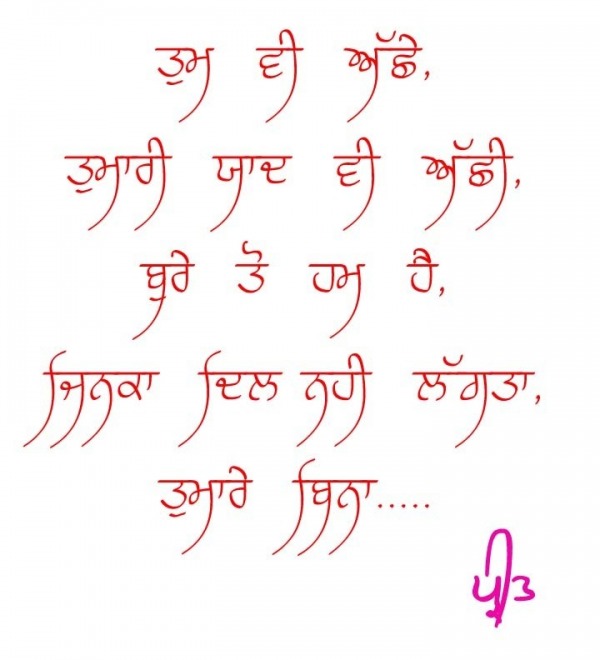 ਤੁਮ ਵੀ ਅੱਛੇ,
ਤੁਮਾਰੀ ਯਾਦ ਵੀ ਅੱਛੀ,
ਬੁਰੇ ਤੋ ਹਮ ਹੈ,
ਜਿਨਕਾ ਦਿਲ ਨਹੀ ਲੱਗਤਾ,
ਤੁਮਾਰੇ ਬਿਨਾ.....
ਪ੍ਰੀਤ